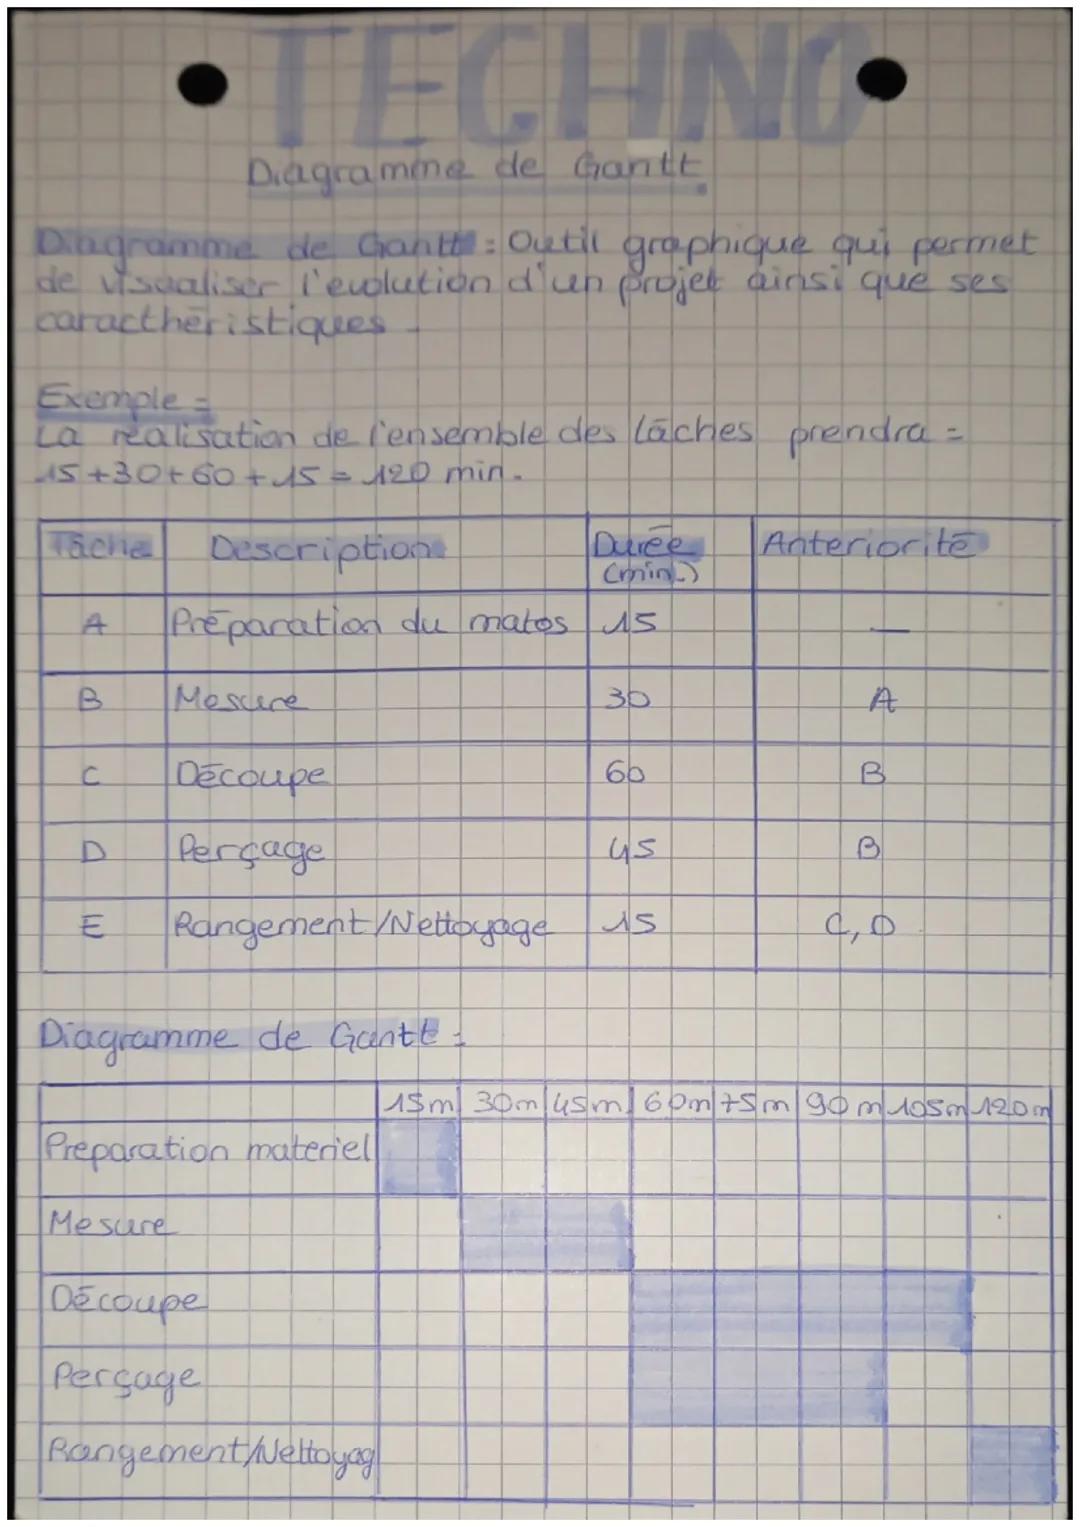 TECHNO
Diagramme de Gantt
Diagramme de Gantt : Outil graphique qui permet
de visualiser l'evolution d'un projet ainsi que ses
caracthéristiques.
Exemple =
La réalisation de l'ensemble des tâches prendra =
15+30+60+15 = 120 min.
Tâche Description Durée (min.) Anteriorité
A Préparation du matos 15 —
B Mesure 30 A
C Découpe 60 B
D Perçage 45 B
E Rangement/Nettoyage 15 C, D
Diagramme de Gantt :
15m 30m 45m 60m 75m 90m 105m 120m
Preparation materiel
Mesure
Découpe
Perçage
Rangement/Nettoyag